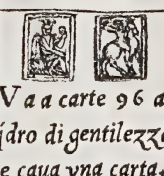 Va a carte 96 a
idro di gentilezza
e caua vna carta.